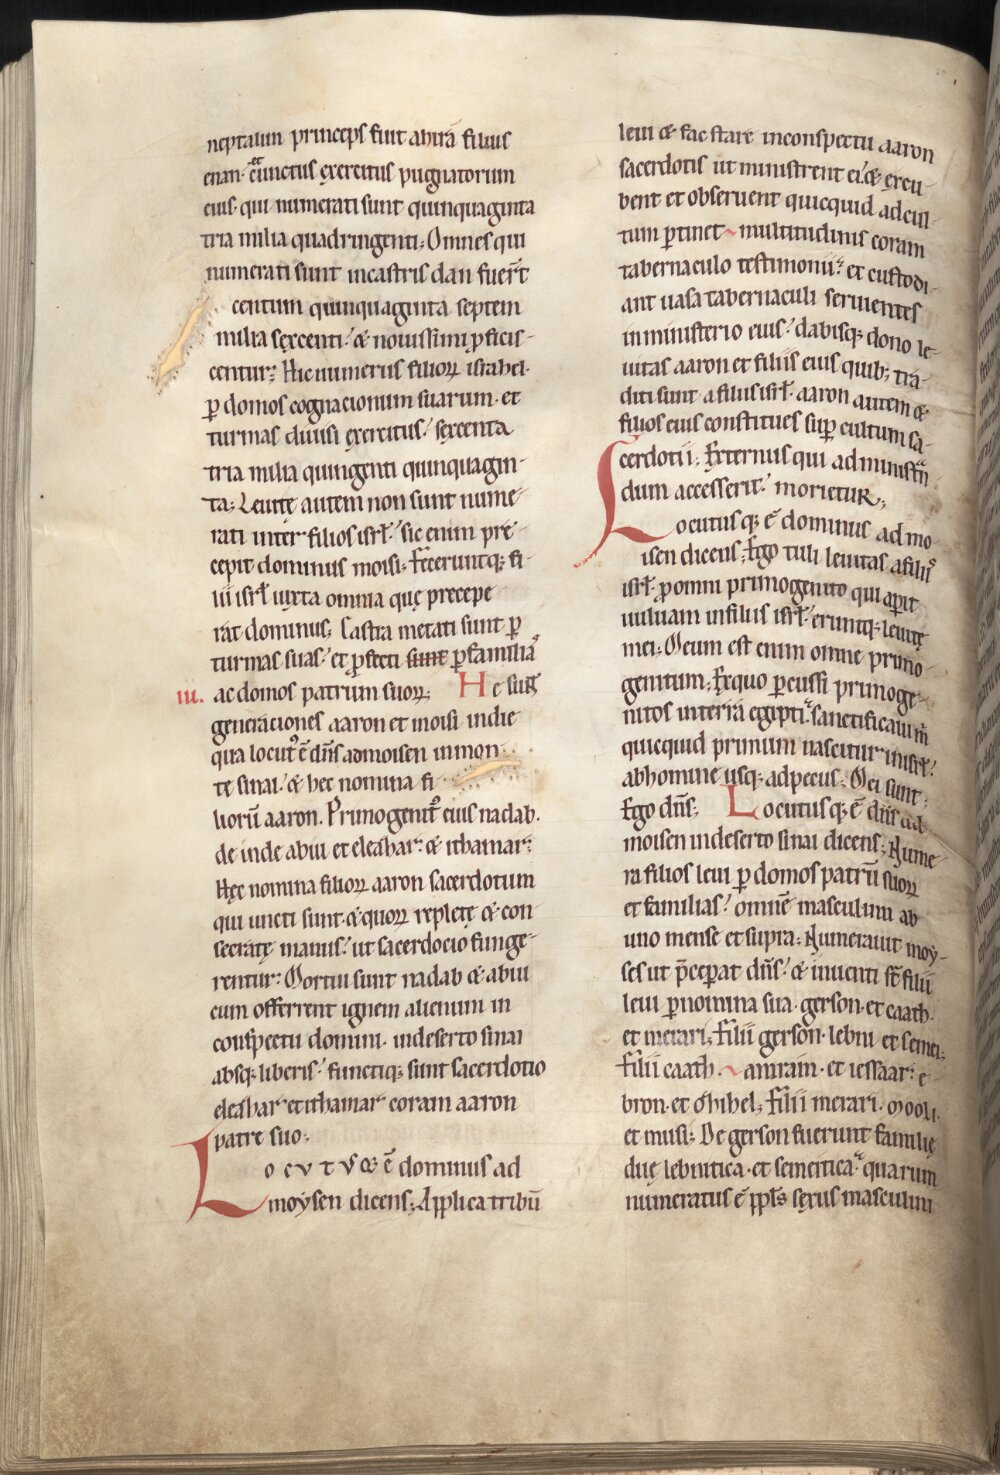 neptalim princeps fuit ahira filius
enan· & cunctus exercitus pugnatorum
eius· qui numerati sunt quinquaginta
tria milia quadringenti; Omnes qui
numerati sunt in castris dan fuer̄t
centum quinquaginta septem
milia sęxcenti; & nouissimi ꝓficis-
centur; Hic numerus filioꝝ israhel·
p̲ domos cognacionum suarum· et
turmas diuisi exercitus; sęxcenta
tria milia quingenti quinquagin-
ta; Leuitę autem non sunt nume-
rati inter filios isrl̄; sic enim pre-
cepit dominus moisi; Feceruntq; fi-
lii isrl̄ iuxta omnia quę precepe-
rat dominus; Castra metati sunt p̲
turmas suas; et ꝓfecti sunt p̲ familias
iii. ac domos patrum suoꝝ; Hę sunt
generaciones aaron et moisi in die
qua locutꝰ ē dn̄s ad moisen in mon-
te sinai; & hec nomina fi-
liorū aaron. Primogenitꝰ eius nadab·
de inde abiu et eleazar; & ithamar;
Hęc nomina filioꝝ aaron sacerdotum
qui uncti sunt· & quoꝝ repletę & con-
secratę manus; ut sacerdocio funge-
rentur; Mortui sunt nadab & abiu
cum offerrent ignem alienum in
conspectu domini· in deserto sinai
absq; liberis; functiq; sunt sacerdotio
eleazar et ithamar coram aaron
patre suo;
Locutusq; ē dominus ad
moysen dicens; Applica tribū
leui & fac stare in conspectu aaron
sacerdotis ut ministrent ei· & excu-
bent et obseruent quicquid ad cul-
tum p̲tinet multitudinis coram
tabernaculo testimonii; et custodi-
ant uasa tabernaculi seruientes
in ministerio eius; dabisq; dono le-
uitas aaron et filiis eius quib; tra-
diti sunt a filiis isrl̄· aaron autem &
filios eius constitues sup̲ cultum sa-
cerdotii; Externus qui ad ministrā-
dum accesserit; morietur;
Locutusq; ē dominus ad mo-
isen dicens; Ego tuli leuitas a filiis
isrl̄ ꝓ omni primogenito qui aperit
uuluam in filiis isrl̄; eruntq; leuitę
mei; Meum est enim omne primo-
genitum; Ex quo p̲cussi primoge-
nitos in terra egipti; sanctificaui m̄
quicquid primum nascitur in isrl̄;
ab homine usq; ad pecus; Mei sunt;
Ego dn̄s; Locutusq; ē dn̄s ad
moisen in deserto sinai dicens; Nume-
ra filios leui p̲ domos patrū suoꝝ
et familias; omnē masculum ab
uno mense et supra; Numerauit moy-
ses ut p̄cep̲at dn̄s; & inuenti st̄ filii
leui p̲ nomina sua· gerson· et caath·
et merari; Filii gerson· lebni et semei;
Filii caath· amram· et iessaar; e-
bron· et ozihel; Filii merari· mooli
et musi; De gerson fuerunt familię
duę lebnitica· et semeitica; quarum
numeratus ē ppl̄s sęxus masculini